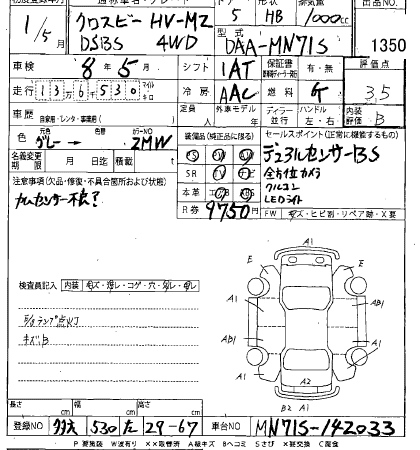 初度登録年月 通称車名・グレード ドア 形状 排気量 出品NO.
1/5 クロスビー HV-MZ DSBS 4WD 5 HB 1000cc
型式 DAA-MN71S 1350
車検 8年5月 シフト 1AT 保証書 有・無 評価点
走行 136530 マイル km 冷房 AAC 燃料 G 3.5
車歴 自家用・レンタ・事業用 定員 人 外車モデル ディーラー 並行 ハンドル 左・右 内装 B
色 元色 グレー → カラーNO ZMW 装備品(純正品に限る) セールスポイント(正常に機能するもの)
名義変更期限 月 日迄 積載 t PS PW AW デュアルセンサーBS
注意事項(欠品・修復・不具合箇所および状態) SR TV ナビ 全方位カメラ
カムセンサー不良? 本革 エアB ABS クルコン
R券 9750 LEDライト
FW キズ・ヒビ割・リペア跡・X要
A1
E E
検査員記入 内装 キズ・汚レ・コゲ・穴・切レ・劣化
A1 A1
AB1
E/gランプ点灯 AB1
キズB A1
A1 A1
A2
B2 A1
長さ cm 幅 cm 高さ cm
登録NO 530 た 29-67 車台NO MN71S-142033
P要塗装 W波有り XX取替済 A線キズ Bヘコミ Sさび X要交換 C腐食